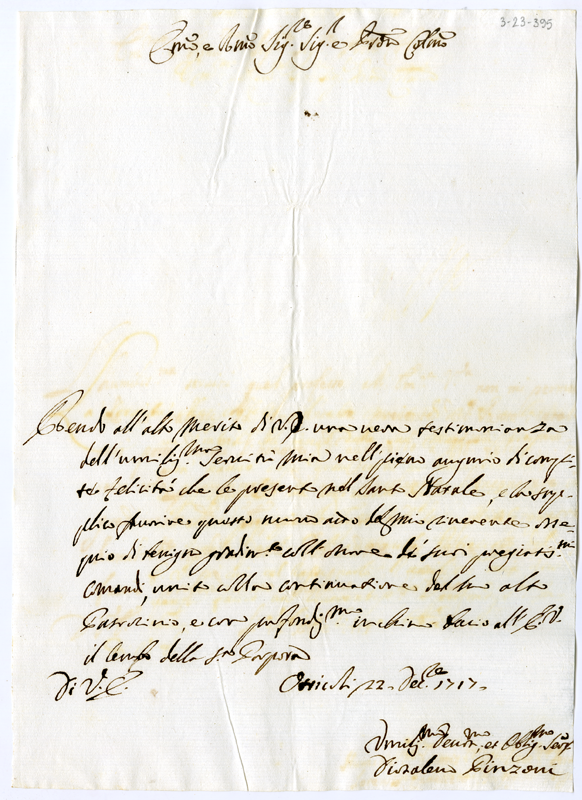 3-23-395
Emo, e Rmo Sig.re Sig.r e Pron Colmo
Rendo all'alto merito di V.E. una vera testimonianza
dell'umiliss.ma servitù mia nell'pieno augurio di compi-
te felicità che le presento nel Santo Natale, e la sup-
plico gradire questo nuovo atto del mio riverente osse-
quio di benigno gradim.to coll'onore de' suoi pregiatis.mi
comandi, unito colla continuazione del suo alto
Patrocinio, e con profondiss.mo inchino bacio all'E.V.
il lembo della Sa. Porpora
Di V.E. Otricoli 22. Dec.bre 1717.
Umiliss.mo Devot.mo et Oblig.mo Ser.
Pinzoni